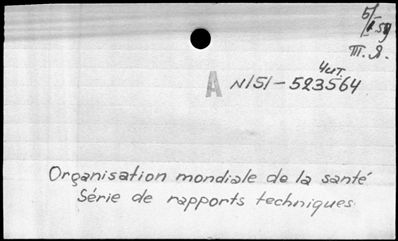 III. Я.
Чит.
A N151-523564
Organisation mondiale de la santé
Série de rapports techniques